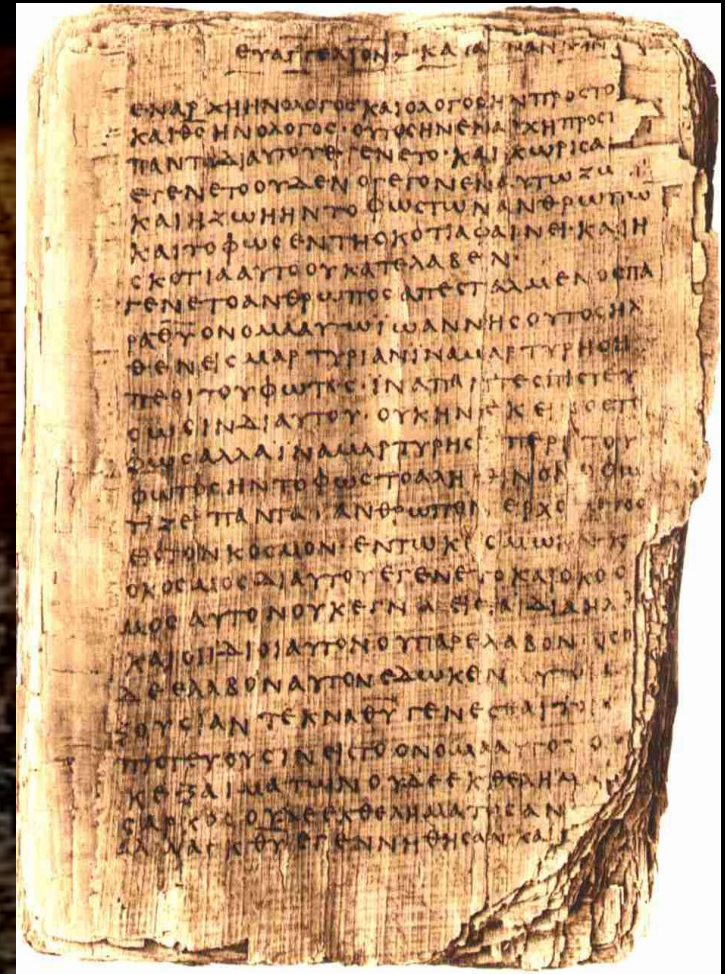 ΕΥΑΓΓΕΛΙΟΝ ΚΑΤΑ
ΕΝΑΡΧΗΗΝΟΛΟΓΟϹΚΑΙΟΛΟΓΟϹΗΝΠΡΟϹΤΟ
ΚΑΙΘ̅Ϲ̅ΗΝΟΛΟΓΟϹ·ΟΥΤΟϹΗΝΕΝΑΡΧΗΠΡΟϹΤ
ΠΑΝΤΑΔΙΑΥΤΟΥΕΓΕΝΕΤΟ·ΚΑΙΧΩΡΙϹΑ
ΕΓΕΝΕΤΟΟΥΔΕΝΟΓΕΓΟΝΕΝΑΥΤΩΖΩ
ΚΑΙΗΖΩΗΗΝΤΟΦΩϹΤΩΝΑΝΘΡΩΠΩ
ΚΑΙΤΟΦΩϹΕΝΤΗϹΚΟΤΙΑΦΑΙΝΕΙ·ΚΑΙΗ
ϹΚΟΤΙΑΑΥΤΟΟΥΚΑΤΕΛΑΒΕΝ·
ΓΕΝΕΤΟΑΝΘΡΩΠΟϹΑΠΕϹΤΑΛΜΕΝΟϹΠΑ
ΡΑΘ̅Υ̅ΟΝΟΜΑΑΥΤΩΙΩΑΝΝΗϹΟΥΤΟϹΗΛ
ΘΕΝΕΙϹΜΑΡΤΥΡΙΑΝΙΝΑΜΑΡΤΥΡΗϹΗ
ΠΕΡΙΤΟΥΦΩΤΟϹ·ΙΝΑΠΑΝΤΕϹΠΙϹΤΕΥ
ϹΩϹΙΝΔΙΑΥΤΟΥ·ΟΥΚΗΝΕΚΕΙΝΟϹΤΟ
ΦΩϹΑΛΛΑΙΝΑΜΑΡΤΥΡΗϹΗ ΠΕΡΙΤΟΥ
ΦΩΤΟϹΗΝΤΟΦΩϹΤΟΑΛΗΘΙΝΟΝ ΟΦΩ
ΤΙΖΕΙΠΑΝΤΑΑΝΘΡΩΠΟΝ ΕΡΧΟ
ΕΙϹΤΟΝΚΟϹΜΟΝ·ΕΝΤΩΚΟϹΜΩΗΝΚ
ΟΚΟϹΜΟϹΔΙΑΥΤΟΥΕΓΕΝΕΤΟΚΑΙΟΚΟϹ
ΜΟϹΑΥΤΟΝΟΥΚΕΓΝΩ·ΕΙϹΤΑΙΔΙΑΗΛ
ΚΑΙΟΙΙΔΙΟΙΑΥΤΟΝΟΥΠΑΡΕΛΑΒΟΝ·ΟϹΟ
ΔΕΕΛΑΒΟΝΑΥΤΟΝΕΔΩΚΕΝ
ΞΟΥϹΙΑΝΤΕΚΝΑΘ̅Υ̅ΓΕΝΕϹΘΑΙΤΟΙϹ
ΠΙϹΤΕΥΟΥϹΙΝΕΙϹΤΟΟΝΟΜΑΑΥΤΟΥ
ΚΕΞΑΙΜΑΤΩΝΟΥΔΕΕΚΘΕΛΗΜ
ϹΑΡΚΟϹΟΥΔΕΕΚΘΕΛΗΜΑΤΟϹΑΝ
ΑΛΛΑΕΚΘ̅Υ̅ΕΓΕΝΝΗΘΗϹΑΝΚΑΙ